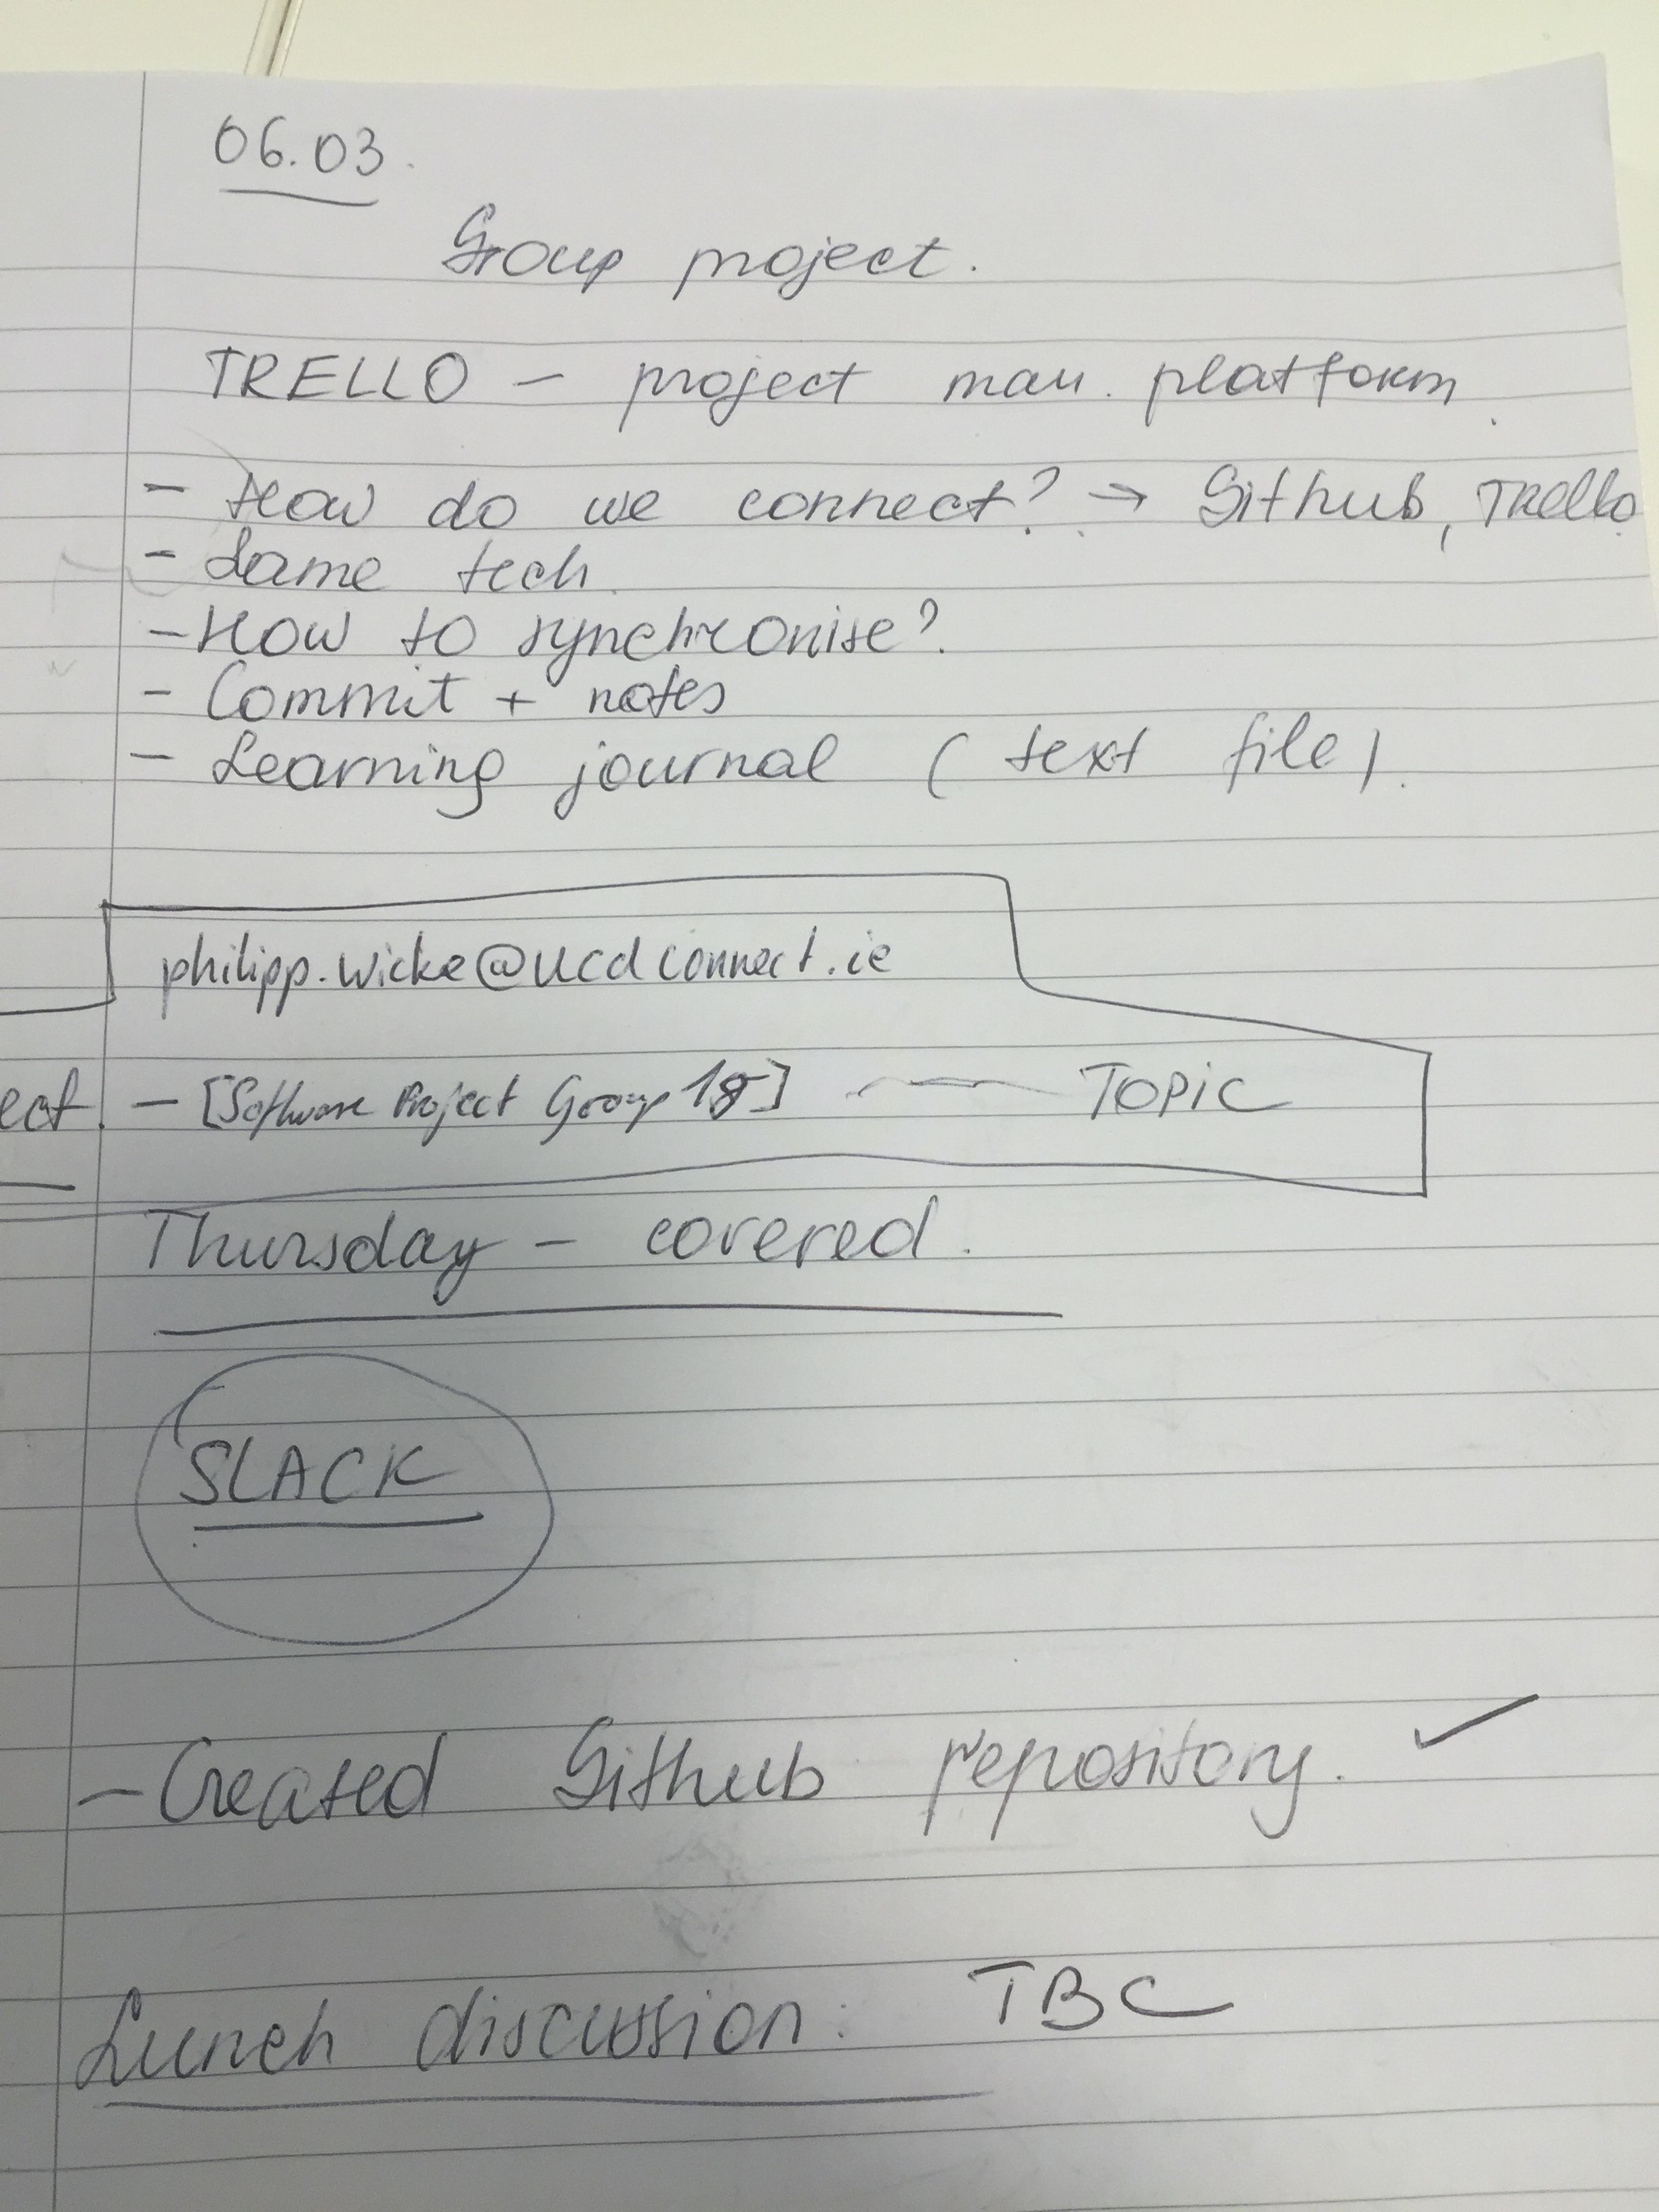 06.03.
Group project.
TRELLO – project man. platform.
– How do we connect? → Github, Trello.
– Same tech.
– How to synchronise?
– Commit + notes
– Learning journal (text file).
philipp.wicke@ucdconnect.ie
ect – [Software Project Group 18] — TOPIC
Thursday – covered.
SLACK
– Created Github repository. ✓
Lunch discussion: TBC